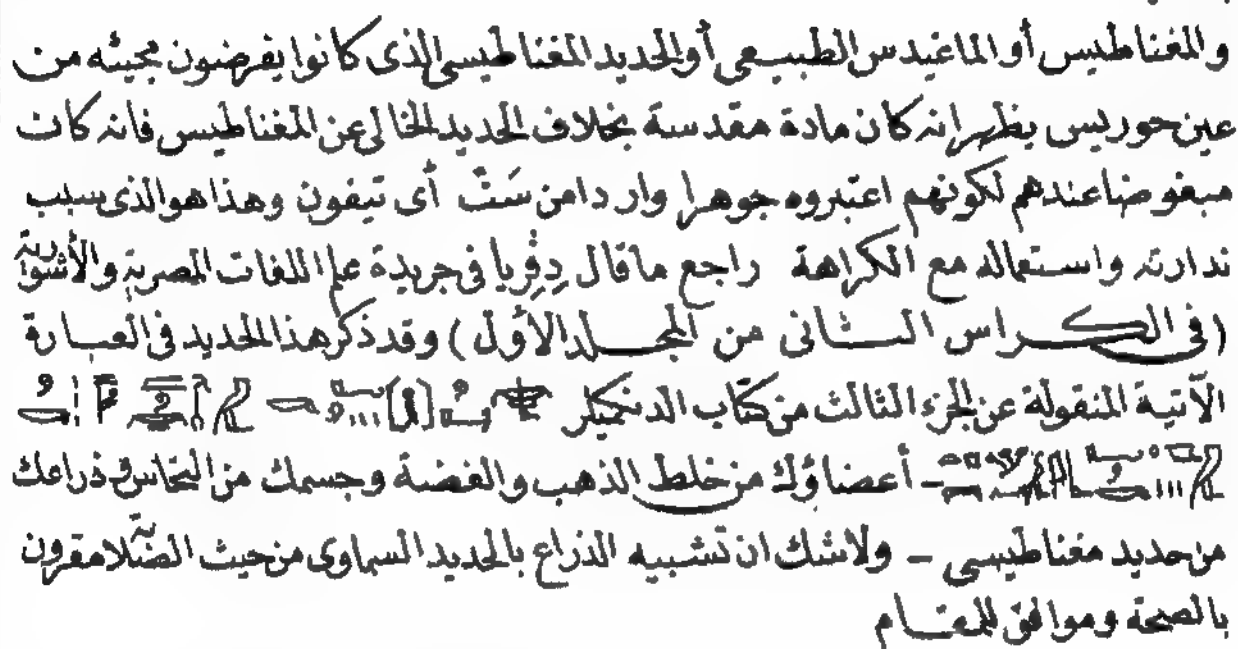 والمغناطيس أو الماغيدس الطبيعى أو الحديد المغناطيسى الذى كانوا يفرضون مجيئه من
عين حوريس يظهر انه كان مادة مقدسة بخلاف الحديد الخالى عن المغناطيس فانه كان
مبغوضا عندهم لكونهم اعتبروه جوهرا واردا من سَتْ أى تيفون وهذا هو الذى سبب
ندارته واستعماله مع الكراهة راجع ما قال دِڤِريا فى جريدة علم اللغات المصرية والأشورية
(فى الكراس الثانى من المجلد الأول) وقد ذكر هذا الحديد فى العبارة
الآتية المنقولة عن الجزء الثالث من كتاب الدنكميلر
– أعضاؤك من خلط الذهب والفضة وجسمك من النحاس وذراعك
من حديد مغناطيسى – ولا شك ان تشبيه الذراع بالحديد السماوى من حيث الصّلابة مقرون
بالصحة وموافق للمقام